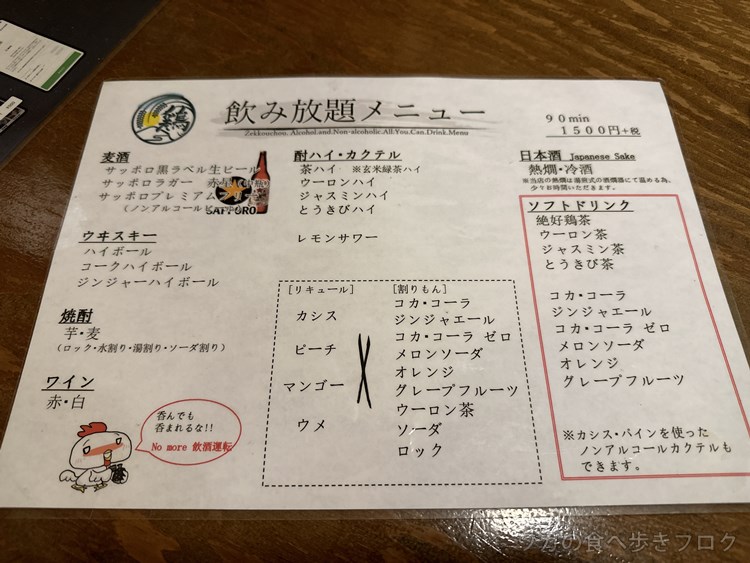 飲み放題メニュー
Zekkouchou. Alcohol.and.Non-alcoholic.All.You.Can.Drink.Menu
90min
1500円+税
麦酒
サッポロ黒ラベル生ビール
サッポロラガー 赤
サッポロプレミアム
(ノンアルコール
SAPPORO
ウヰスキー
ハイボール
コークハイボール
ジンジャーハイボール
焼酎
芋・麦
(ロック・水割り・湯割り・ソーダ割り)
ワイン
赤・白
呑んでも
呑まれるな!!
No more 飲酒運転
酎ハイ・カクテル
茶ハイ ※玄米緑茶ハイ
ウーロンハイ
ジャスミンハイ
とうきびハイ
レモンサワー
[リキュール]
カシス
ピーチ
マンゴー
ウメ
[割りもん]
コカ・コーラ
ジンジャエール
コカ・コーラ ゼロ
メロンソーダ
オレンジ
グレープフルーツ
ウーロン茶
ソーダ
ロック
日本酒 Japanese Sake
熱燗・冷酒
※当店の熱燗は湯煎式の酒燗器にて温める為、
少々お時間いただきます。
ソフトドリンク
絶好鶏茶
ウーロン茶
ジャスミン茶
とうきび茶
コカ・コーラ
ジンジャエール
コカ・コーラ ゼロ
メロンソーダ
オレンジ
グレープフルーツ
※カシス・パインを使った
ノンアルコールカクテルも
できます。
の食べ歩きブログ